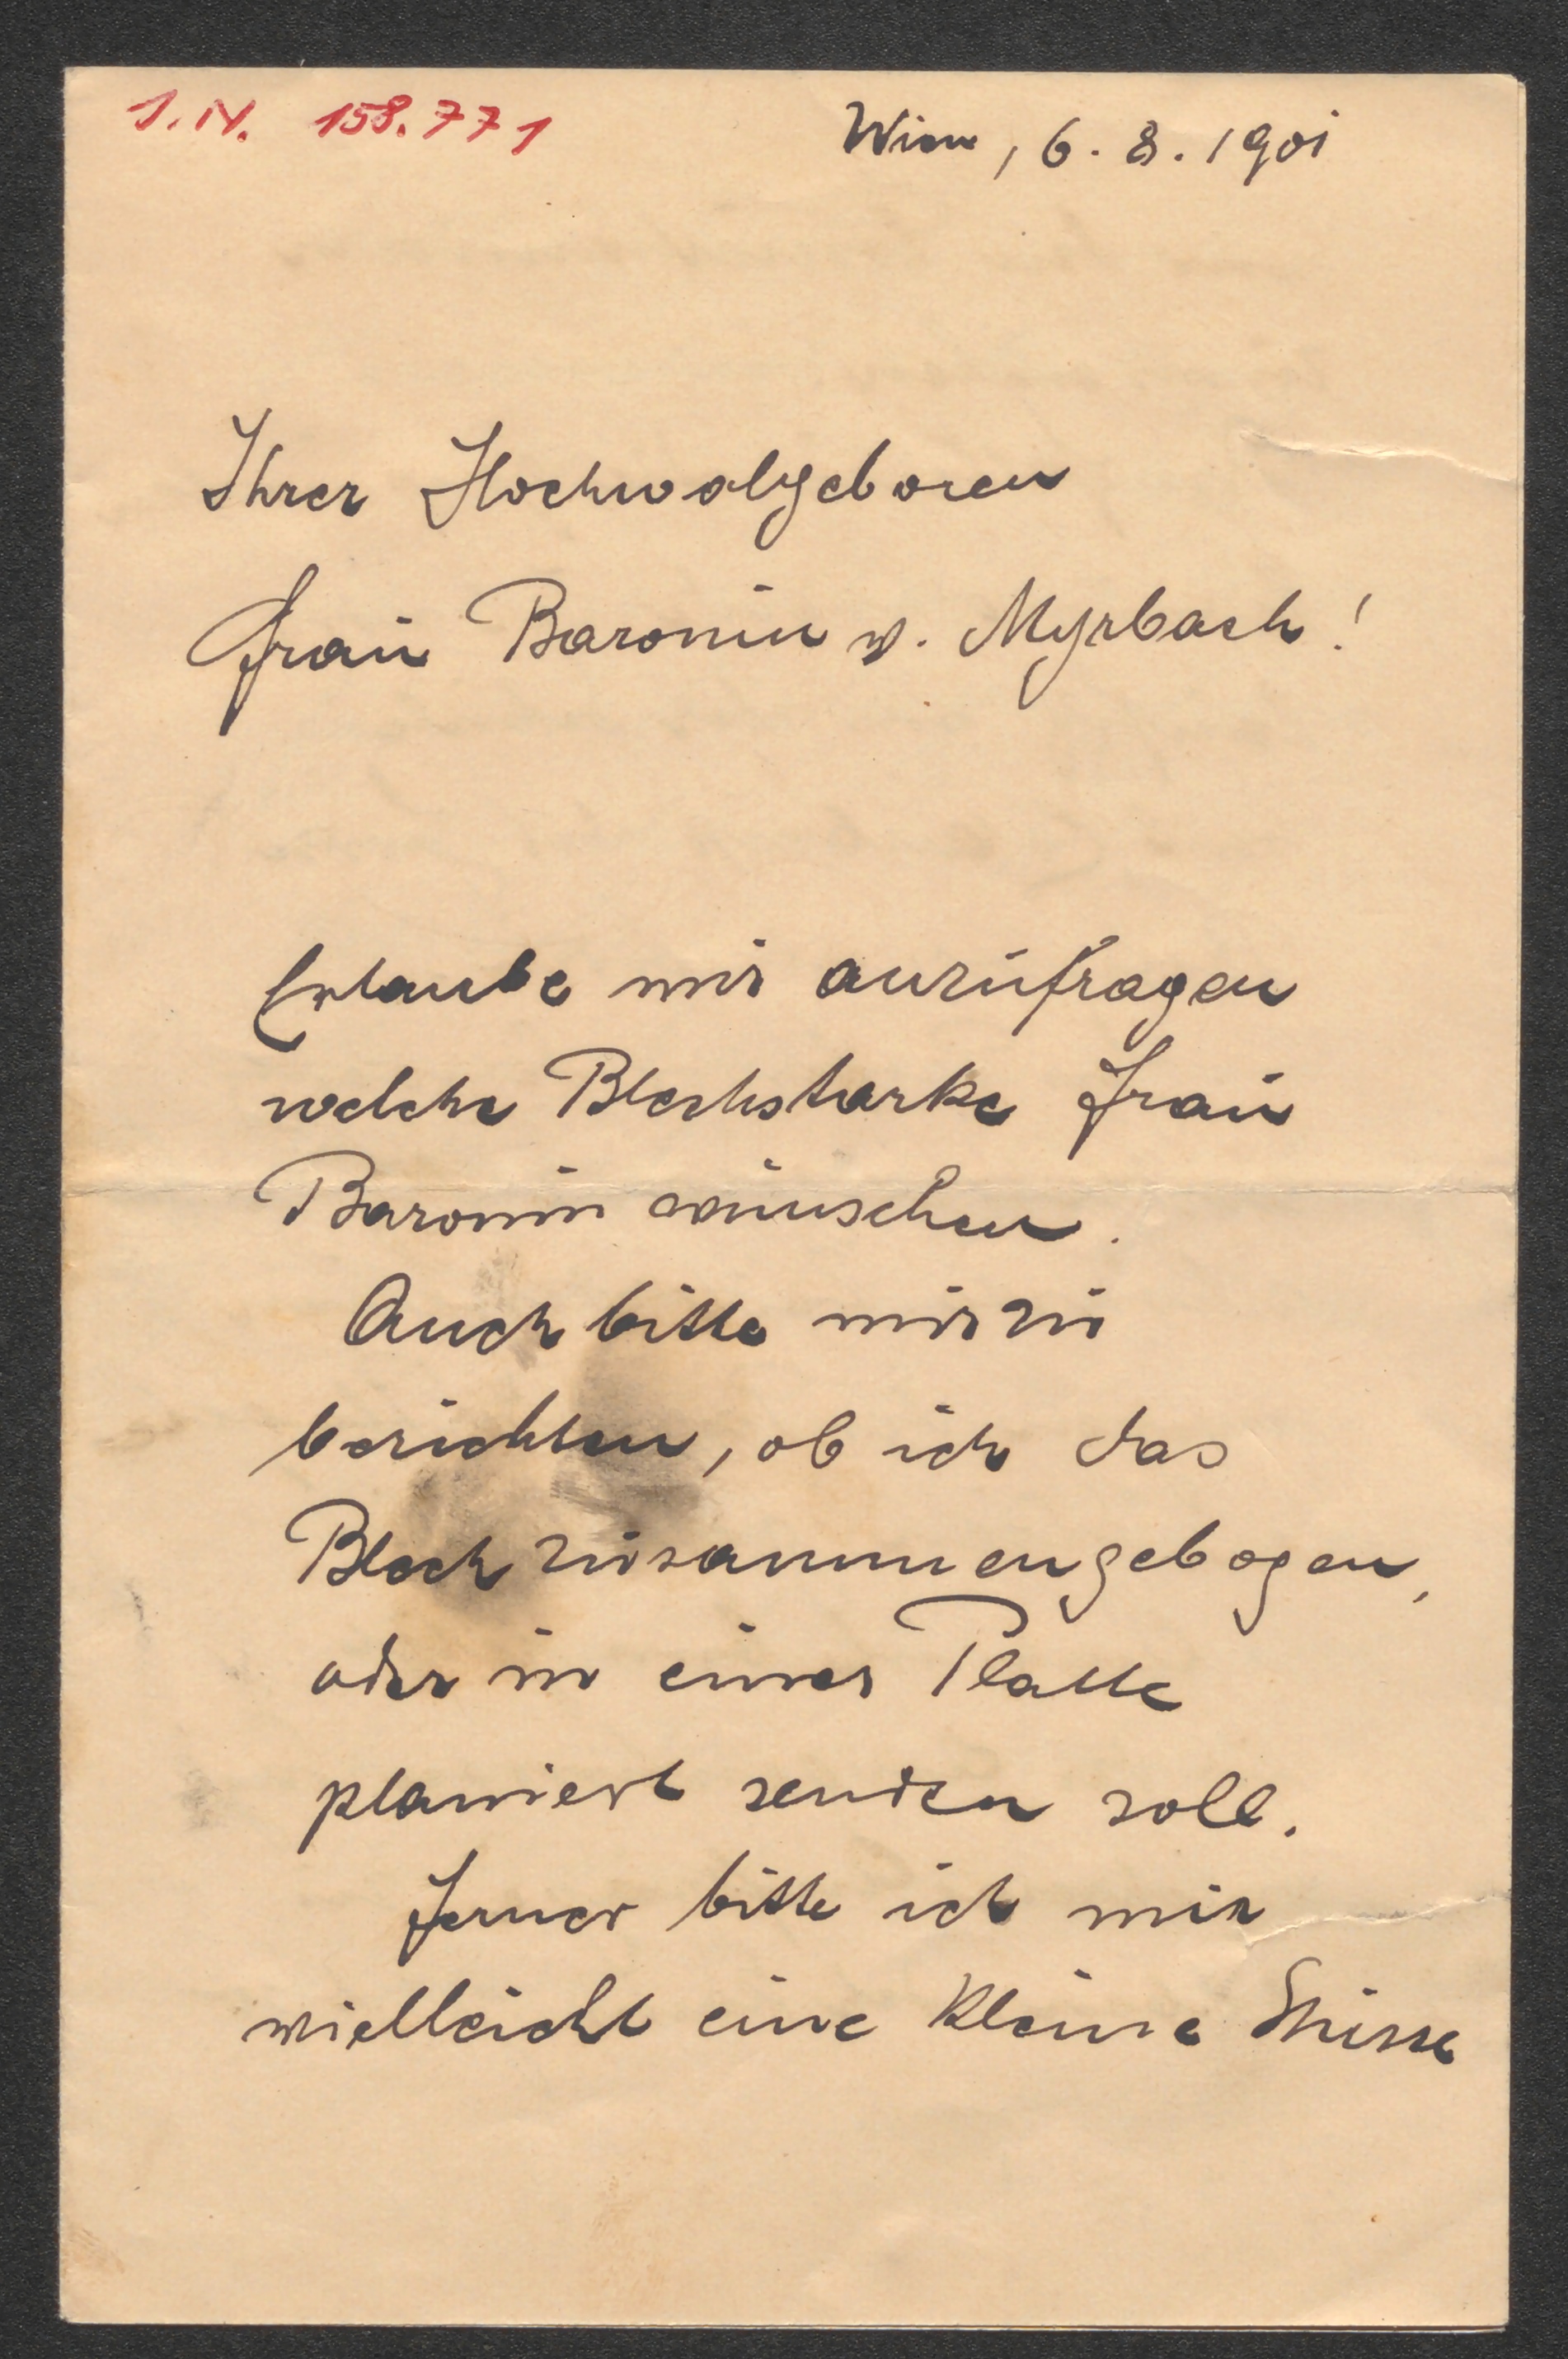 I.N. 158.771
Wien, 6. 8. 1901
Ihrer Hochwolgeboren
Frau Baronin v. Myrbach!
Erlaube mir anzufragen
welche Blechstarke Frau
Baronin wünschen.
Auch bitte mir zu
berichten, ob ich das
Blech zusammengebogen,
oder in einer Platte
planiert senden soll.
Ferner bitte ich mir
vielleicht eine kleine Skizze